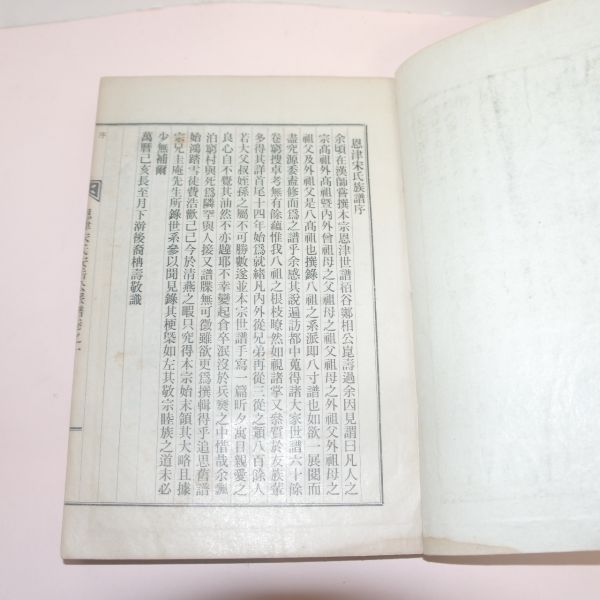 恩津宋氏族譜序
余頃在漢師嘗撰本宗恩津世譜栢谷鄭相公崑壽過余因見謂曰凡人之
宗高祖外高祖曁內外曾祖母之父祖母之父祖母之外祖父外祖母之
祖父及外祖父是八高祖也撰錄八祖之系派即八寸譜也如欲一展閱而
盡究源委盍修而爲之譜乎余感其說遍訪都中蒐得諸大家世譜六十餘
卷窮搜卓考無有餘蘊惟我八祖之根枝瞭然如視諸掌又叅質於友族輩
多得其詳首尾十四年始爲就緖凡內外從兄弟再從三從之類八百餘人
若大父叔姪孫之屬不可勝數遂並本宗世譜手寫一篇昕夕寓目親愛之
良心自不覺其油然不亦韙耶不幸變起倉卒泯沒於兵燹之中惜哉余飄
泊窮村與死爲隣罕與人接又譜牒無可徵雖欲更爲撰輯得乎追思舊譜
始鴻踏雪徒費浩歎已已今於清燕之暇只究得本宗始末領其大略且據
宗兄圭庵先生所錄世系參以聞見錄其梗槩如左其敬宗睦族之道未必
少無補爾
萬曆己亥長至月下澣後裔柟壽敬識
序
恩津宋氏
大族譜卷之一